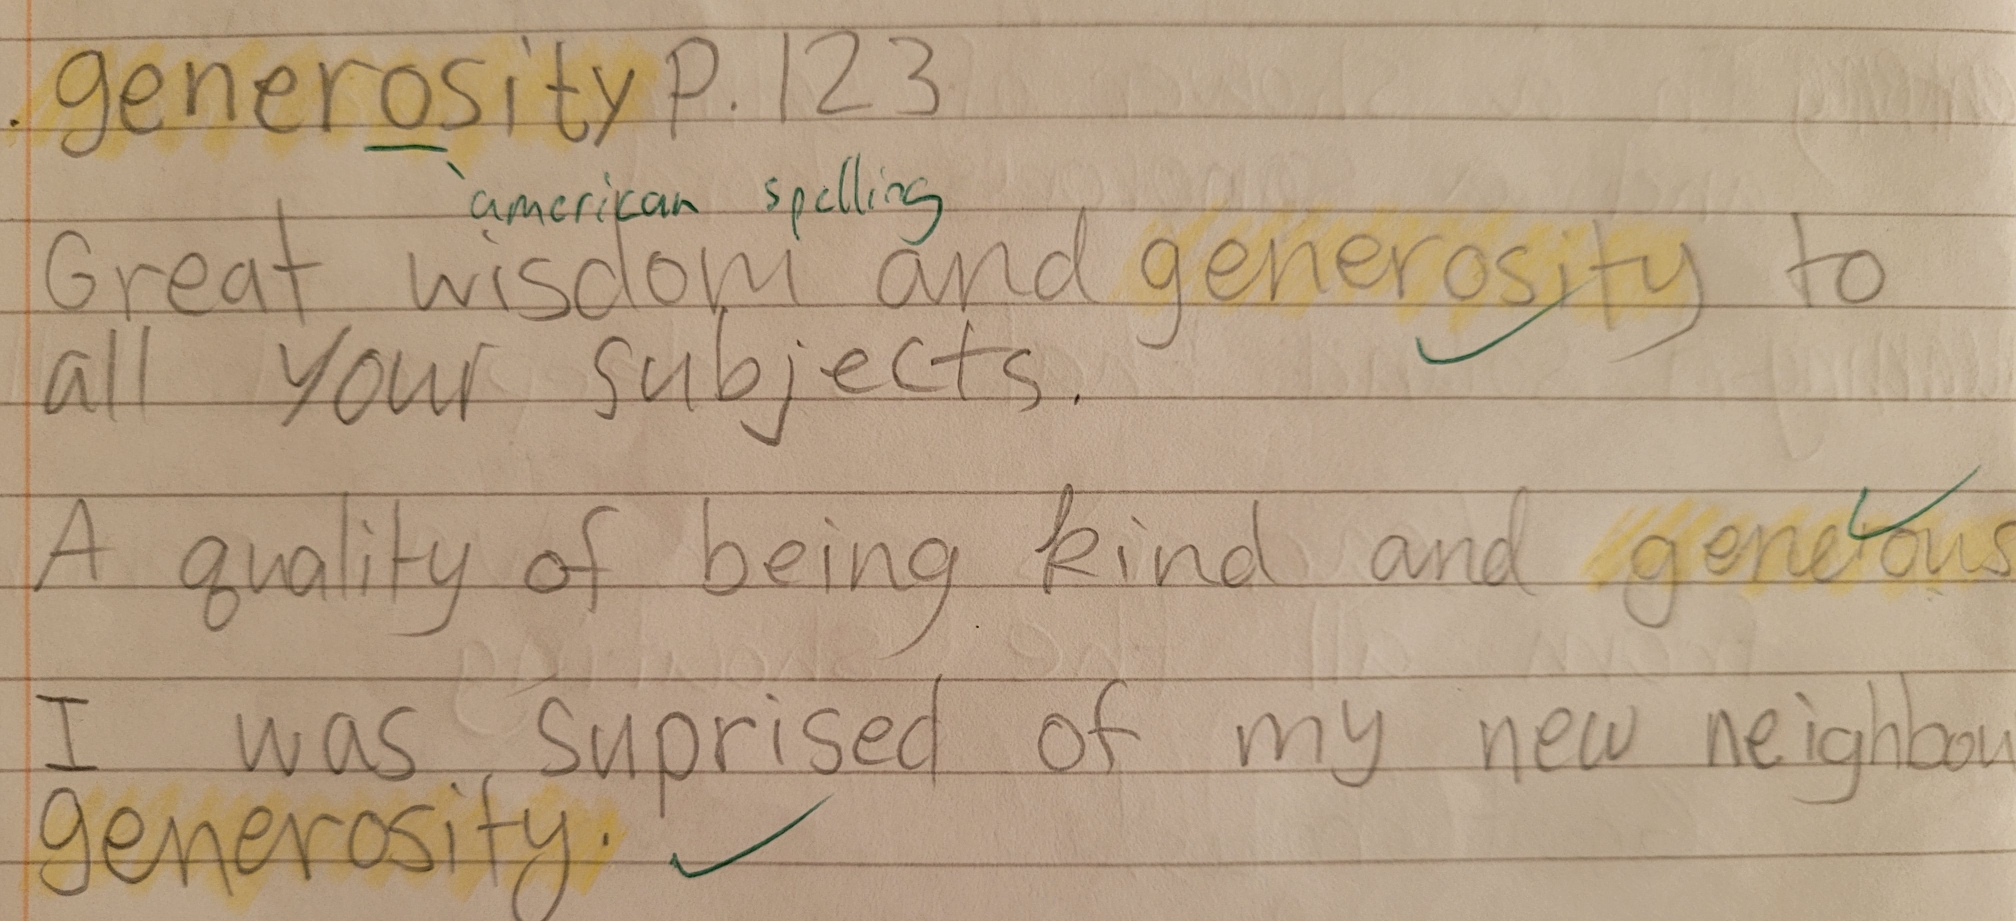 . generosity P. 123
american spelling
Great wisdom and generosity to
all your subjects.
A quality of being kind and generous
I was suprised of my new neighbou
generosity.